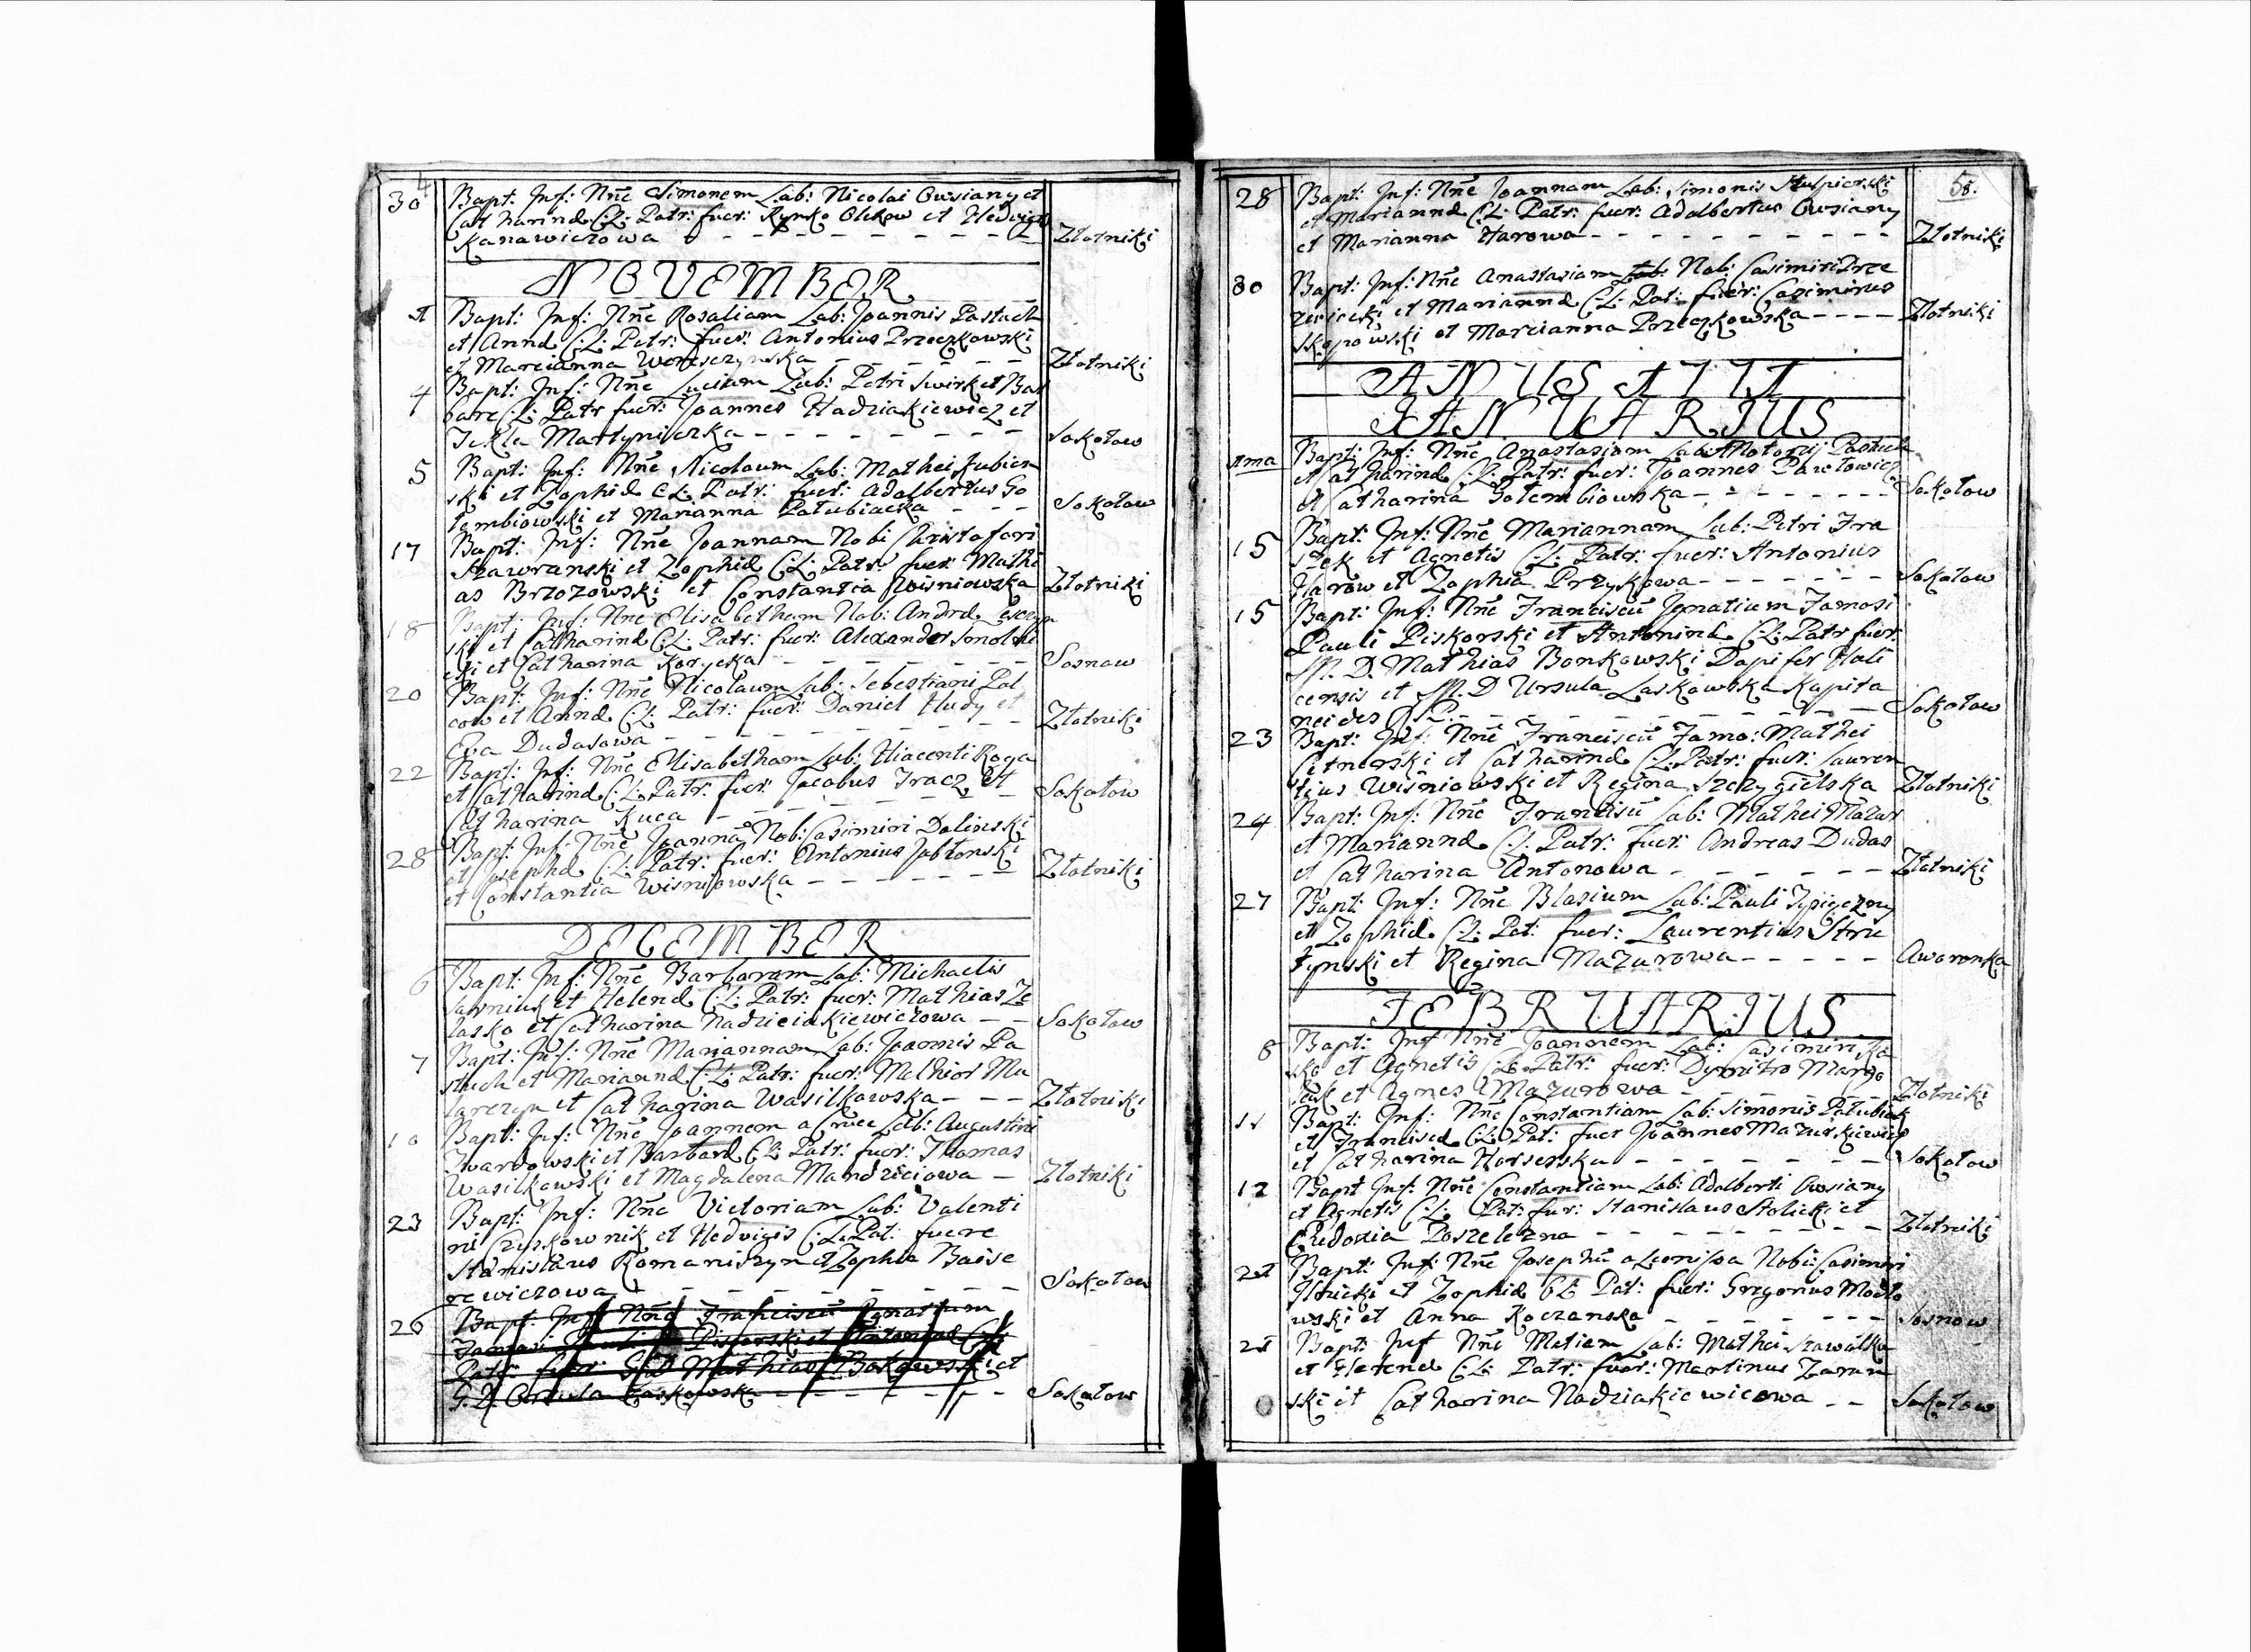 30
Bapt: Inf: Nñe Simonem Lab: Nicolai Owsiany et
Catharinæ C:L: Patr: fuer: Rynko Olekow et Hedvigis
Kanawiczowa - - - - - - - - Złotniki
NOVEMBER
1 Bapt: Inf: Nñe Rosaliam Lab: Joannis Pastuch
et Annæ C:L: Patr: fuer: Antonius Przeczkowski
et Marcianna - - - - Złotniki
4 Bapt: Inf: Nñe Luciam Lab: Petri Swirk et Bar
bare C:L: Patr fuer: Joannes Hadziakiewicz et
Tekla Martyniczka - - - - - - - Sokołow
5 Bapt: Inf: Nñe Nicolaum Lab: Mathei Jubien
ski et Zophiæ C:L: Patr: fuer: Adalbertus Go
łembiowski et Marianna Patubiacka - - - Sokołow
17 Bapt: Inf: Nñe Joannam Nobi Christofori
Szawranski et Zophiæ C:L: Patr: fuer: Mathi
as Brzozowski et Constantia Wisniowska Złotniki
18 Bapt: Inf: Nñe Elisabetham Nob: Andreæ
ski et Catharinæ C:L: Patr: fuer: Alexander
cki et Catharina Korycka - - - - - - Sosnow
20 Bapt: Inf: Nñe Nicolaum Lab: Sebestiani Pal
cow et Annæ C:L: Patr: fuer: Daniel Hudy et
Eva Dudasowa - - - - - - - - Złotniki
22 Bapt: Inf: Nñe Elisabetham Lab: Hiacenti Koga
et Catharinæ C:L: Patr: fuer: Jacobus Tracz et
Catharina Kuca - - - - - - - Sokołow
28 Bapt: Inf: Nñe Joannã Nob: Casimiri Dolinski
et Josephæ C:L: Patr: fuer: Antonius Jabłonski
et Constantia Wisniowska - - - - - - - Złotniki
DECEMBER
6 Bapt: Inf: Nñe Barbaram Lab: Michaelis
et Helenæ C:L: Patr: fuer: Mathias Ze
lasko et Catharina Nadzieiakiewiczowa - - Sokołow
7 Bapt: Inf: Nñe Mariannam Lab: Joannis Pa
stuch et Mariannæ C:L: Patr: fuer: Melhior Mu
larczyn et Catharina Wasilkowska - - - Złotniki
10 Bapt: Inf: Nñe Joannem a Cruce Lab: Augustini
Twardowski et Barbaræ C:L: Patr: fuer: Thomas
Wasilkowski et Magdalena Mandziciowa - Złotniki
23 Bapt: Inf: Nñe Victoriam Lab: Valenti
ni Czyskownik et Hedvigis C:L: Pat: fuere
Stanislaus Romaniszyn et Zophia Baise
rewiczowa - - - - - - - - Sokołow
26 Bapt: Inf: Nñe Franciscũ Ignatium
Famosi Pauli Piskorski et Antoninæ C:L:
Patr: fuer: G:D Mathias Bakowski et
G.D. Ursula Laskowska - - - - - - - Sokołow
58.
28 Bapt: Inf: Nñe Joannam Lab: Simonis Stulpierski
et Mariannæ C:L: Patr: fuer: Adalbertus Owsiany
et Marianna Harowa - - - - - - - - - Złotniki
30 Bapt: Inf: Nñe Anastasiam Lab: Nob: Casimiri Trze
et Mariannæ C:L: Pat: fuer: Casimirus
Skopowski et Marcianna Przeczkowska - - - - Złotniki
ANUS 1771
JANUARIUS
1ma Bapt: Inf: Nñe Anastasiam Lab: Pastuch
et Catharinæ C:L: Patr: fuer: Joannes Pawłowicz
et Catharina Gołembiowska - - - - - - - Sokołow
15 Bapt: Inf: Nñe Mariannam Lab: Petri Fra
et Agnetis C:L: Patr: fuer: Antonius
Harow et Zophia Przyskowa - - - - - - - Sokołow
15 Bapt: Inf: Nñe Franciscũ Ignatium Famosi
Pauli Piskorski et Antoninæ C:L: Patr fuer:
M. D. Mathias Bonkowski Dapifer Hali
censis et M. D Ursula Laskowska Kapita
neides - - - - - - - - Sokołow
23 Bapt: Inf: Nñe Franciscũ Famo: Mathei
Cetnerski et Catharinæ C:L: Patr: fuer: Lauren
tius Wiśniowski et Regina Szczygielska Złotniki
24 Bapt: Inf: Nñe Franciscũ Lab: Mathei Mazur
et Mariannæ C:L: Patr: fuer: Andreas Dudas
et Catharina Antonowa - - - - - - Złotniki
27 Bapt: Inf: Nñe Blasium Lab: Pauli
et Zophiæ C:L: Pat: fuer: Laurentius Stru
tynski et Regina Mazurowa - - - - - Aworonka
FEBRUARIUS
8 Bapt: Inf Nñe Joannem Lab: Casimiri Ka
sko et Agnetis C:L: Patr: fuer: Dymitro Margo
et Agnes Mazurowa - - - - - Złotniki
11 Bapt: Inf: Nñe Constantiam Lab: Simonis Patubiak
et Franciscæ C:L: Pat: fuer Joannes Mazurskiewicz
et Catharina Horserska - - - - - - - Sokołow
12 Bapt Inf: Nñe Constantiam Lab: Adalberti Owsiany
et Agnetis C:L: Pat: fuer: Stanislaus Stolicki et
Eudoxia Poszelezna - - - - - - - Złotniki
21 Bapt: Inf: Nñe Josephũ a Leonissa Nobi: Casimiri
Ilnicki et Zophiæ C:L: Pat: fuer: Gregorius Modło
wski et Anna Koczanska - - - - - - Sosnow
21 Bapt: Inf Nñe Matiam Lab: Mathei Szawałka
et Helenæ C:L: Patr: fuer: Martinus Zarem
ski et Catharina Nadziakiewicowa - - Sokołow